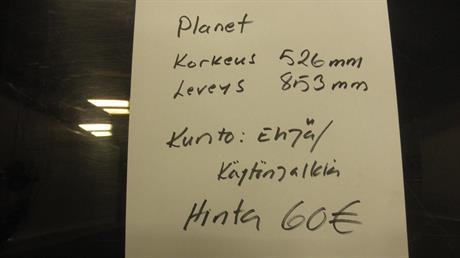 Planet
Korkeus 526mm
Leveys 853mm
Kunto: Ehjä/
Käytönjälkiä
Hinta 60€